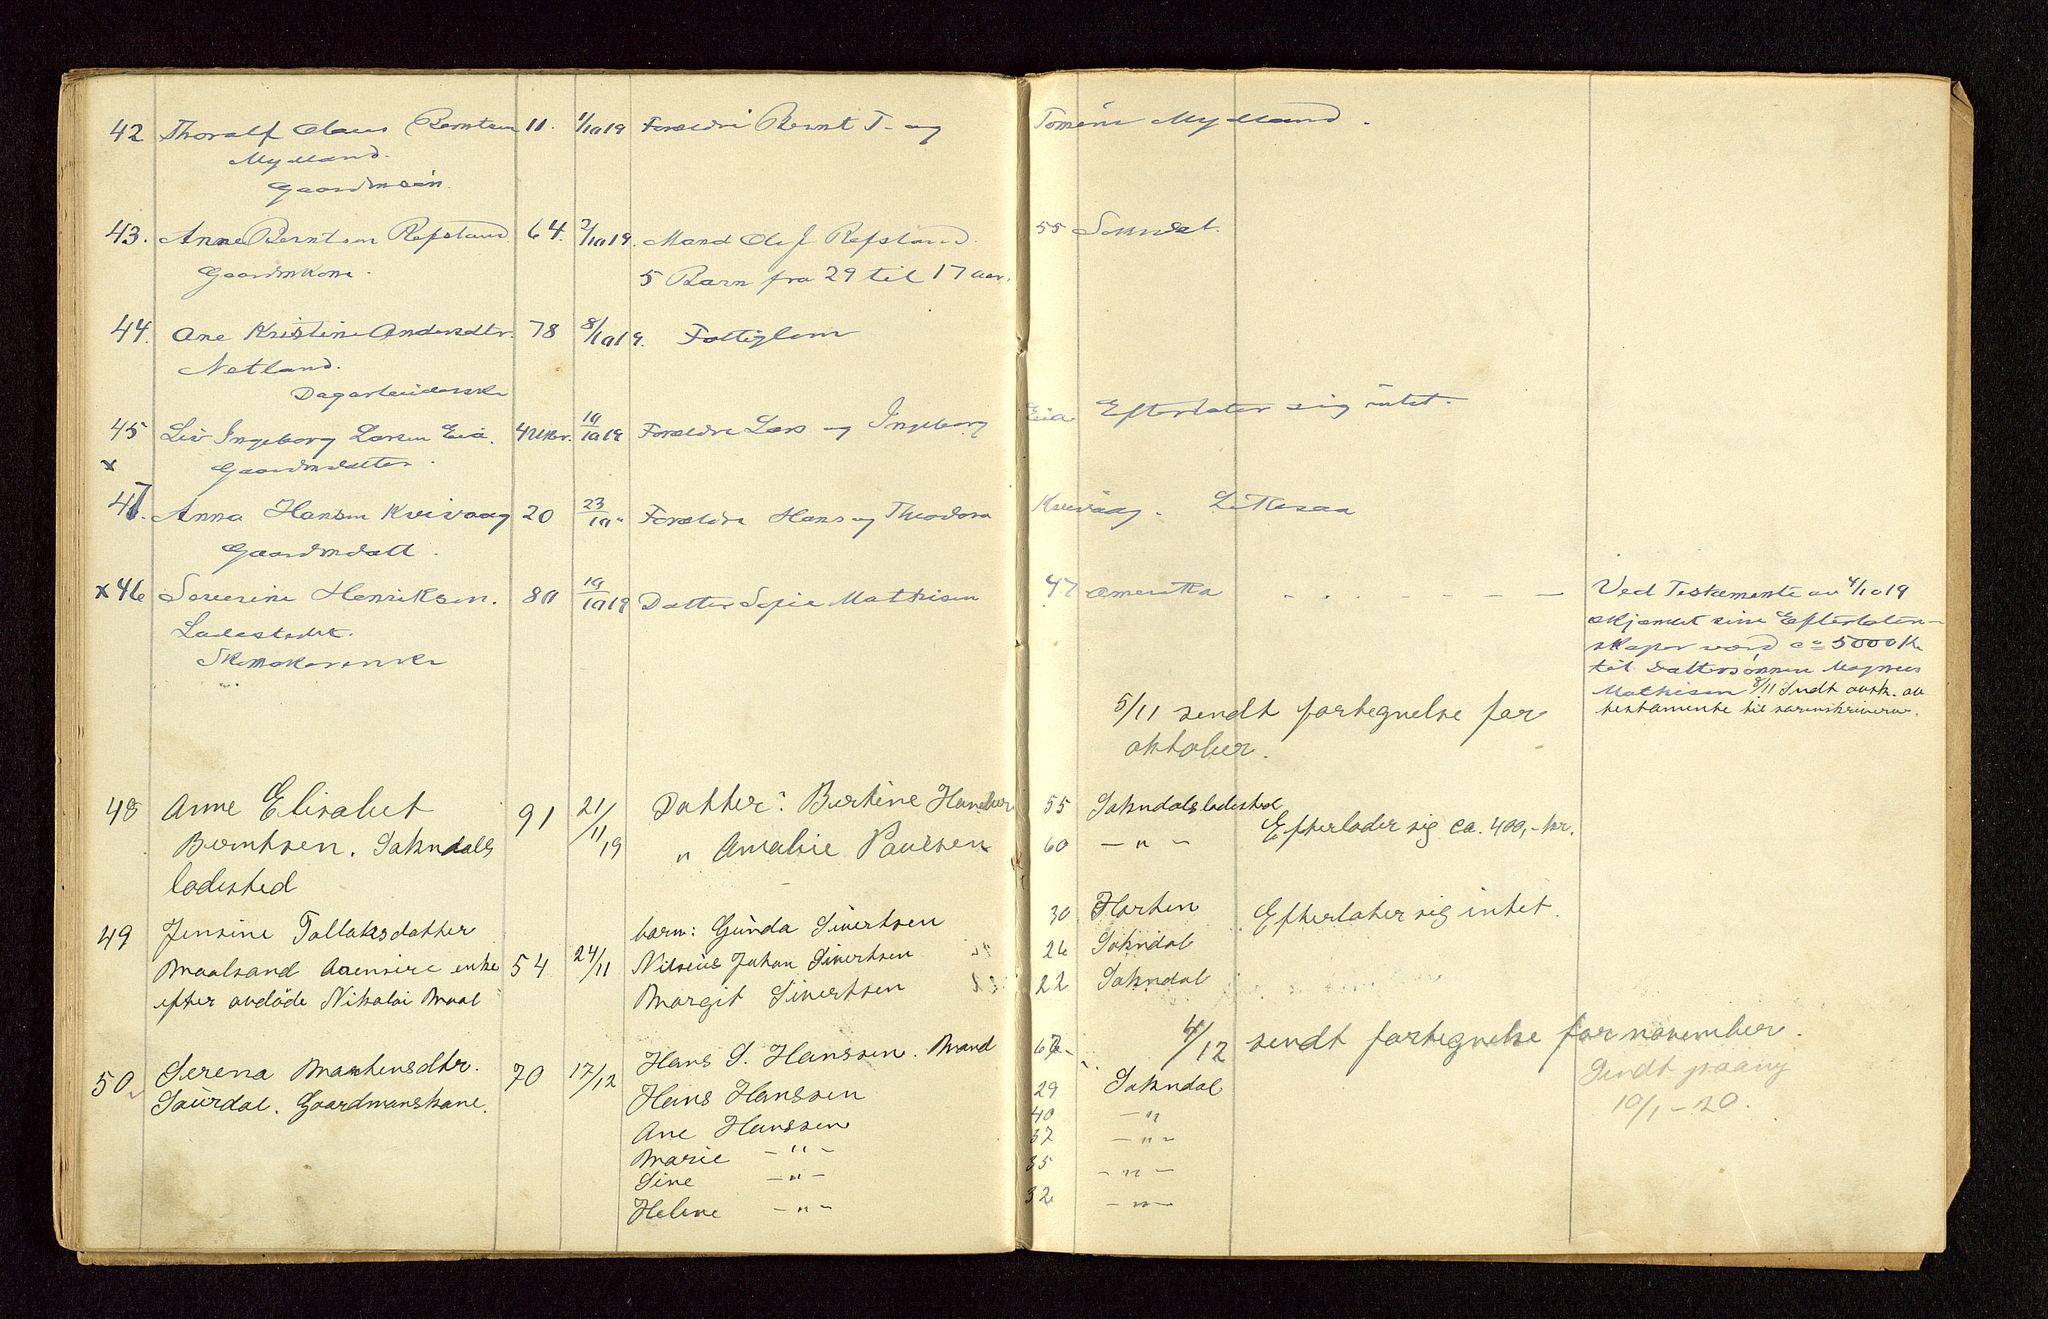 42 Thoralf Olaus Berntsen 11. 1/10 19 Foreldre Bernt T. og Tomine Mydland.
Mydland.
Gaardmsøn.
43. Anne Berntsen Refsland 64. 2/10 19. Mand Ole J. Refsland. 55 Sokndal.
Gaardmkone. 5 Barn fra 29 til 17 aar.
44. Ane Kristine Andersdtr. 78 8/10 19. Fattiglem
Netland.
Dagarbeiderske Efterlater sig intet.
45 Liv Ingeborg Larsen Eia. 4 Uker. 19/10 19 Foreldre Lars og Ingeborg Eia
x Gaardmdatter.
47. Anna Hansen Kvivaag 20 23/10 " Foreldre Hans og Theodora Kvivaag.
Gaardmdatt.
x 46 Severine Henriksen. 80 19/10 19 Datter Sofie Mathisen 47 Amerika Ved Testamente av 4/10 19
Ladestedet. skjænket sine Efterlaten-
Skomakerenke skaper værd ca 5000 Kr
til Dattersønnen Magnus
Mathisen 8/11 Sendt avsk. av
testamente til sorenskriveren.
5/11 sendt fortegnelse for
oktober.
48 Anne Elisabet 91 21/11 19 Datter: Bertine 55 Sokndals ladested
Berntsen. Sokndals " Amalie Paulsen 60 — " — Efterlader sig ca. 400,- kr.
ladested
49 Jensine Tollaksdatter 54 24/11 barn: Gunda Sivertsen 30 Horten Efterlater sig intet.
enke Nilseus Johan Sivertsen 26 Sokndal
efter avdøde Nikolai Margit Sivertsen 22 Sokndal
4/12 sendt fortegnelse for november.
Sendt paany
10/1 - 20.
50. Serena Martensdtr. 70 17/12 Hans S. Hanssen. Mand
Saurdal. Gaardmanskone. Hans Hanssen 29 Sokndal
Ane Hanssen 40 — " —
Marie — " — 37 — " —
Sine — " — 35 — " —
Helene — " — 32 — " —